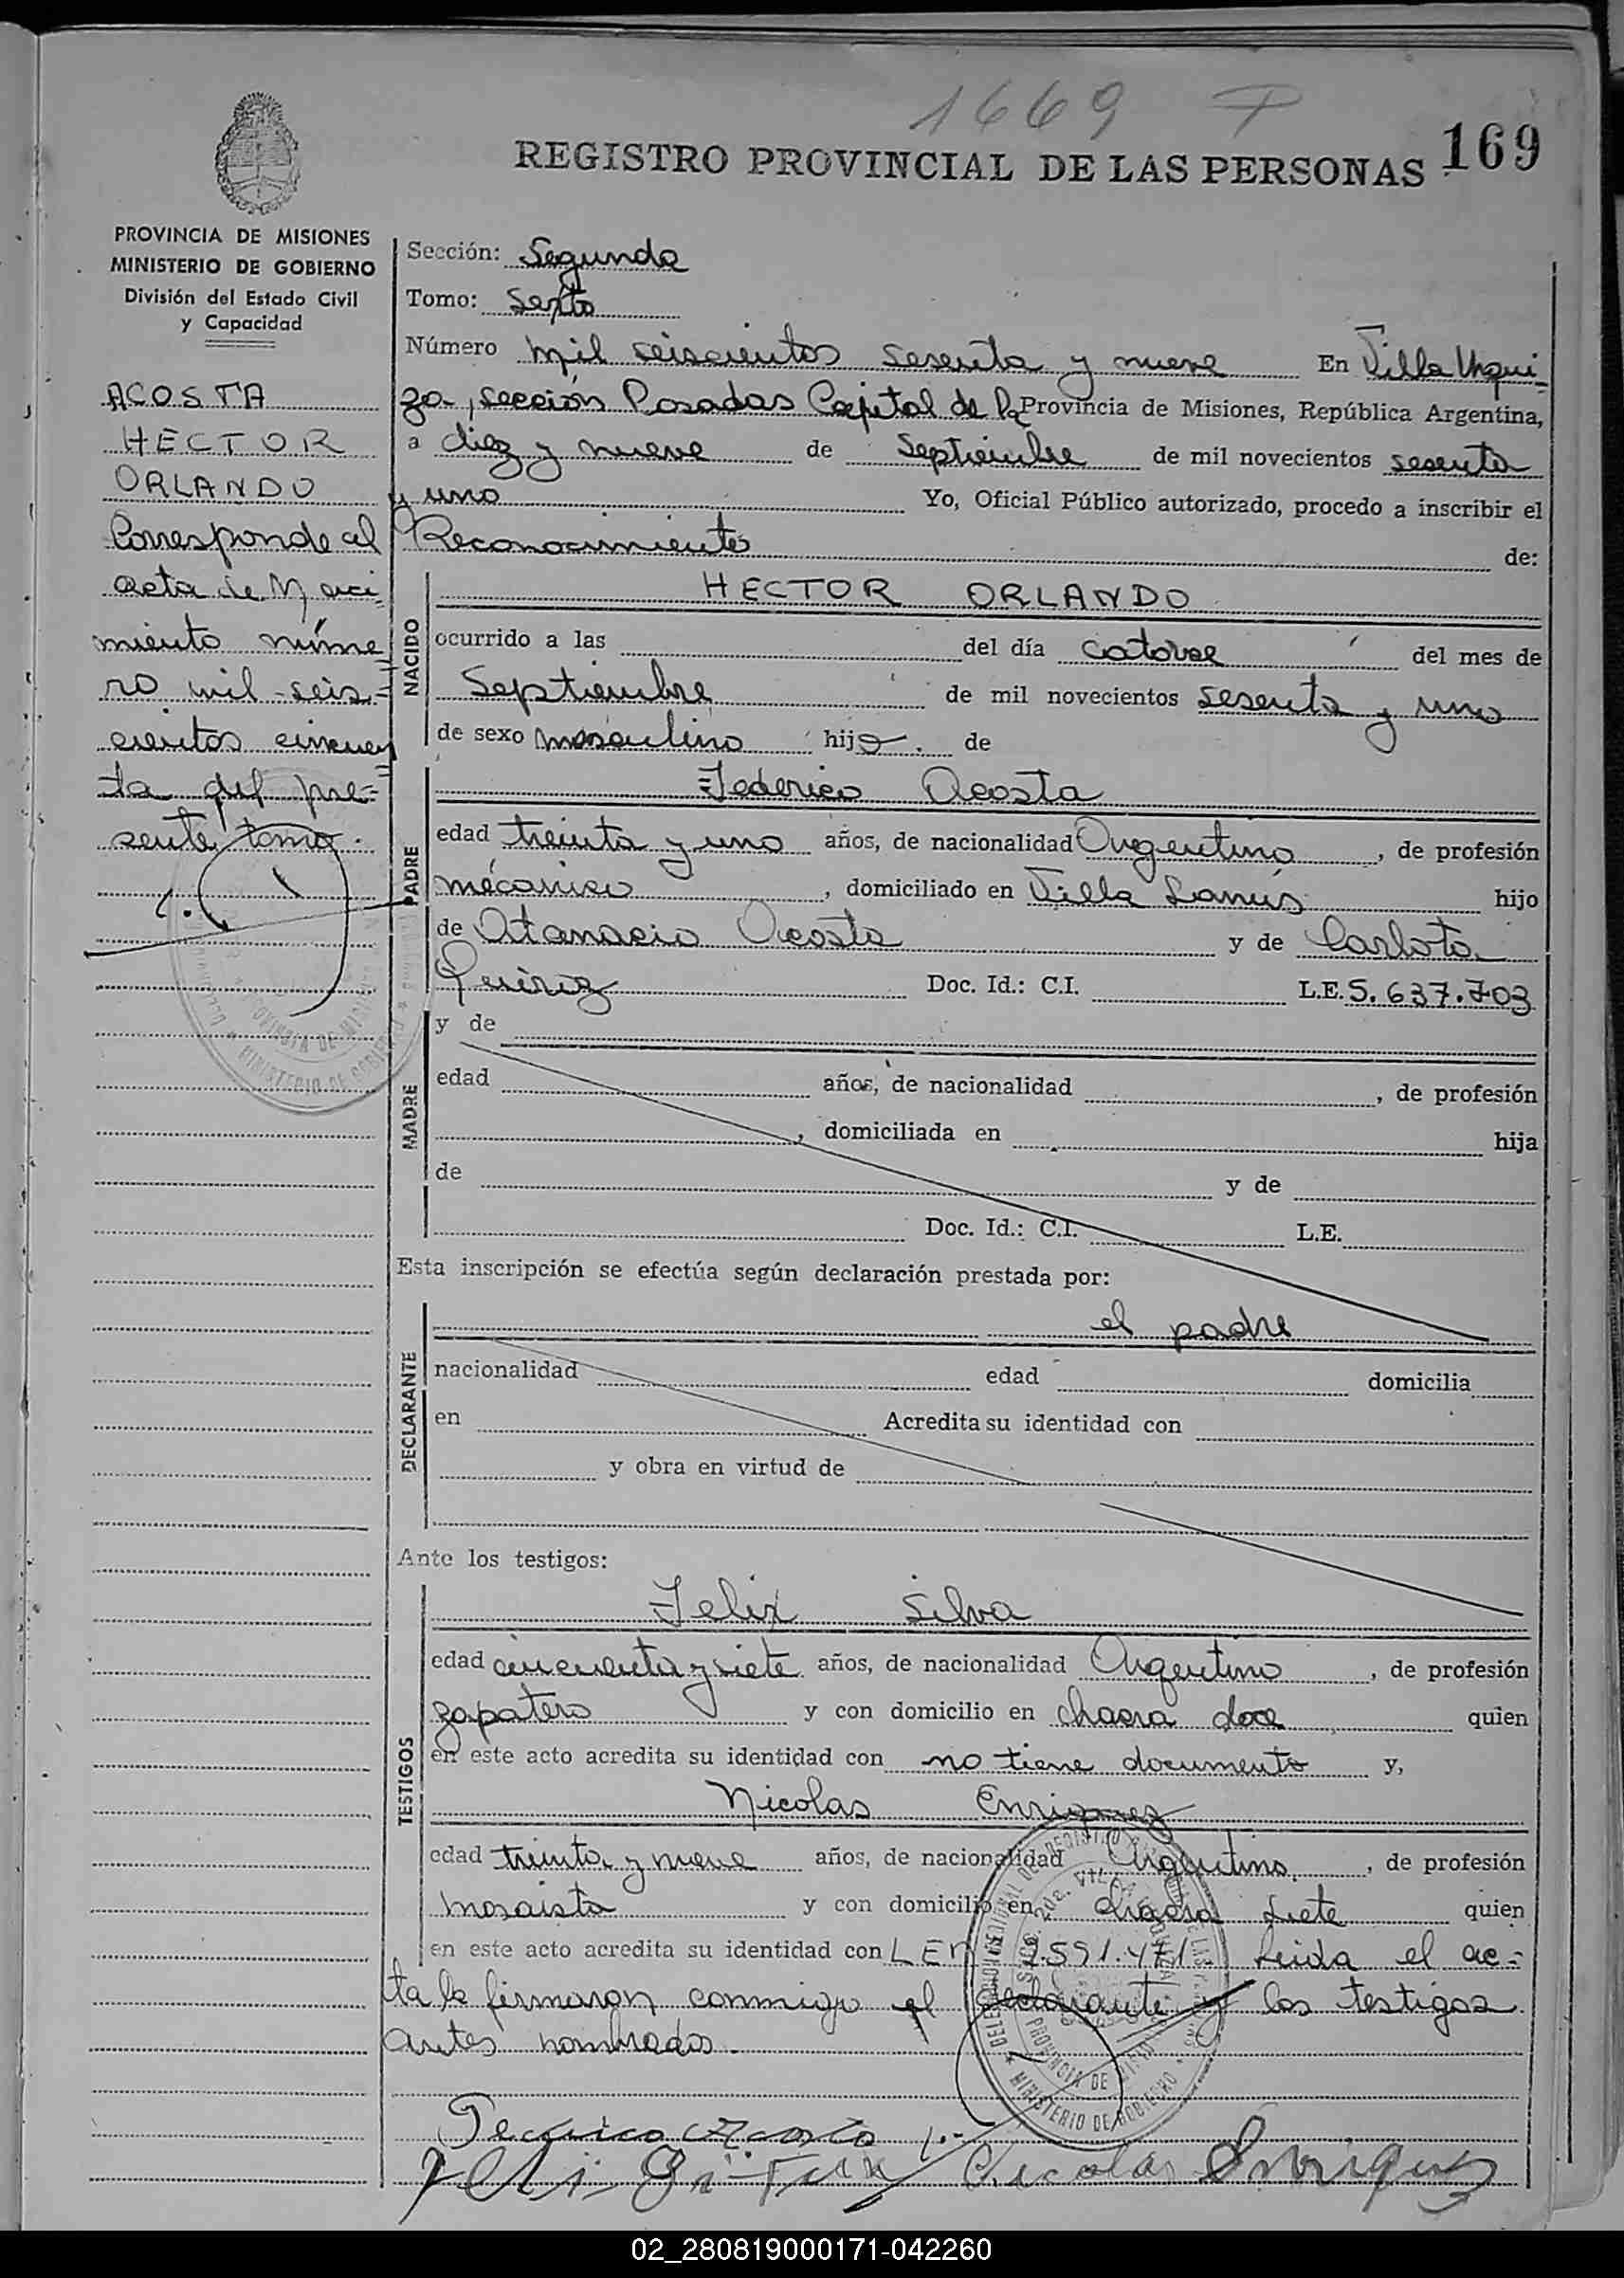 1669
169
REGISTRO PROVINCIAL DE LAS PERSONAS
PROVINCIA DE MISIONES
MINISTERIO DE GOBIERNO
División del Estado Civil
y Capacidad
ACOSTA
HECTOR
ORLANDO
Corresponde al
acta de Naci-
miento núme
ro mil seis-
cientos cincuen
ta del pre-
sente tomo.
Sección: Segunda
Tomo: Sexto
Número mil seiscientos sesenta y nueve En Villa Urqui-
za, sección Posadas Capital de la Provincia de Misiones, República Argentina,
a diez y nueve de Septiembre de mil novecientos sesenta
y uno Yo, Oficial Público autorizado, procedo a inscribir el
Reconocimiento de:
NACIDO
HECTOR ORLANDO
ocurrido a las del día catorce del mes de
Septiembre de mil novecientos sesenta y uno
de sexo masculino hijo. de
PADRE
Federico Acosta
edad treinta y uno años, de nacionalidad Argentino, de profesión
mécanico, domiciliado en Villa Lanús hijo
de Atanacio Acosta y de Carlota
Quiroz Doc. Id.: C.I. L.E. 5.637.703
MADRE
y de
edad años, de nacionalidad , de profesión
, domiciliada en hija
de y de
Doc. Id.: C.I. L.E.
Esta inscripción se efectúa según declaración prestada por:
DECLARANTE
el padre
nacionalidad edad domicilia
en Acredita su identidad con
y obra en virtud de
Ante los testigos:
TESTIGOS
Felix Silva
edad cincuenta y siete años, de nacionalidad Argentino, de profesión
zapatero y con domicilio en chacra doce quien
en este acto acredita su identidad con no tiene documento y,
Nicolas Enriquez
edad treinta y nueve años, de nacionalidad Argentino, de profesión
mosaista y con domicilio en chacra siete quien
en este acto acredita su identidad con L E .591.471 Leida el ac-
ta la firmaron conmigo el declarante y los testigos
antes nombrados.
Federico Acosta
Nicolas Enriquez
02_280819000171-042260